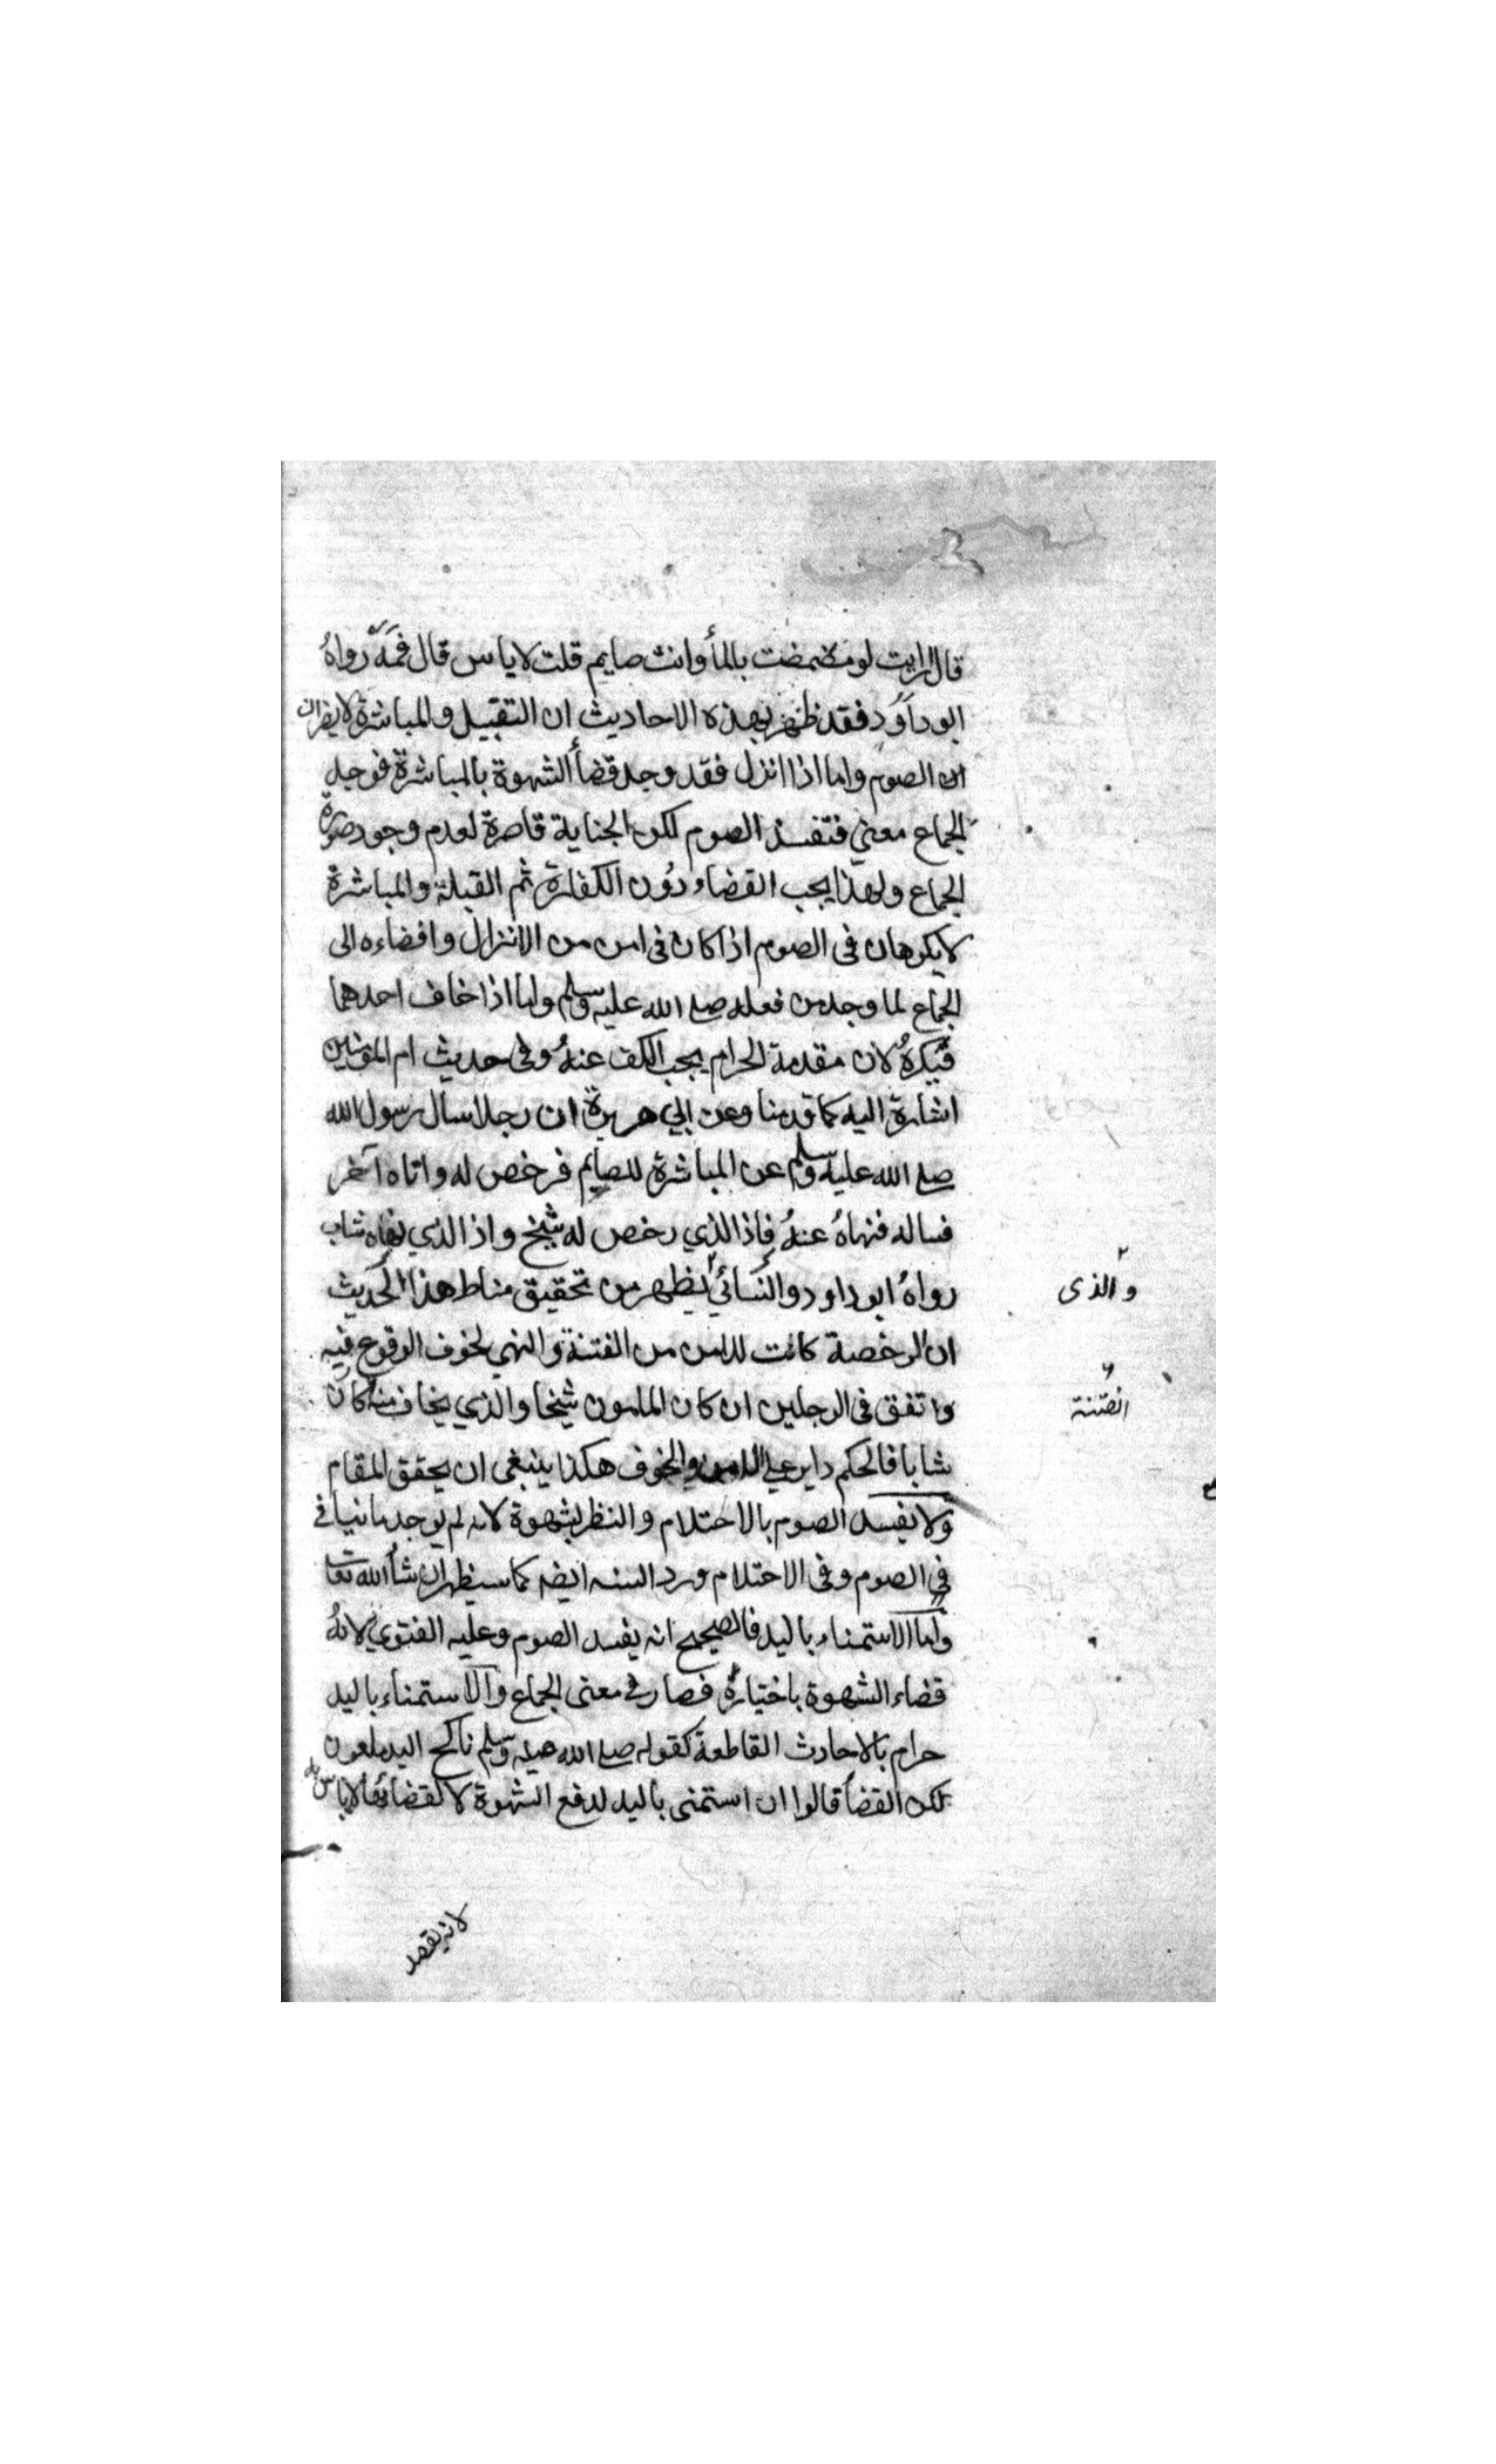 قال ارايت لو مضمضت بالمأ وانت صايم قلت لا باس قال فمَهْ رواهُ
ابو داوُد فقد ظهر بهذه الاحاديث ان التقبيل والمباشرة لا يضران
ان الصوم واما اذا انزل فقد وجد قضأ الشهوة بالمباشرة فوجد
الجماع معني فتفسد الصوم لكن الجناية قاصرة لعدم وجود صورة
الجماع ولهذا يجب القضاء دُون الكفارة ثم القبلة والمباشرة
لا يكرهان فى الصوم اذا كان فى امن من الانزال وافضاءه الى
الجماع لما وجد من فعله صلى الله عليه وسلم واما اذا خاف احدهما
فيكرهُ لان مقدمة الحرام يجب الكف عنهُ وفى حديث ام المؤمنين
اشارة اليه كما قدمنا وعن ابي هريرة ان رجلا سال رسول الله
صلى الله عليه وسلم عن المباشرة للصايم فرخص له واتاه آخر
فساله فنهاهُ عنهُ فاذا الذي رخص له شيخ واذا الذي نهاه شاب
رواهُ ابو داود والنسائي يظهر من تحقيق مناط هذا الحديث
والذى
ان الرخصة كانت للامن من الفتنة والنهي لخوف الوقوع فيه
واتفق فى الرجلين ان كان المامون شيخا والذي يخاف منه كان
الفتنة
شابا فالحكم داير على الامن والخوف هكذا ينبغى ان يحقق المقام
ولا يفسد الصوم بالاحتلام والنظر بشهوة لانه لم يوجد ما ينافي
في الصوم وفى الاحتلام ورد السنه ايضه كما سيظهر ان شأ الله تعا
واما الاستمناء باليد فالصحيح انه يفسد الصوم وعليه الفتوي لانهُ
قضاء الشهوة باختياره فصار في معنى الجماع والاستمناء باليد
حرام بالاحادث القاطعة كقوله صلى الله عليه وسلم ناكح اليد ملعون
لكن القضأ قالوا ان استمنى باليد لدفع الشهوة لا لقضائها لا باس به
لانه يقصد